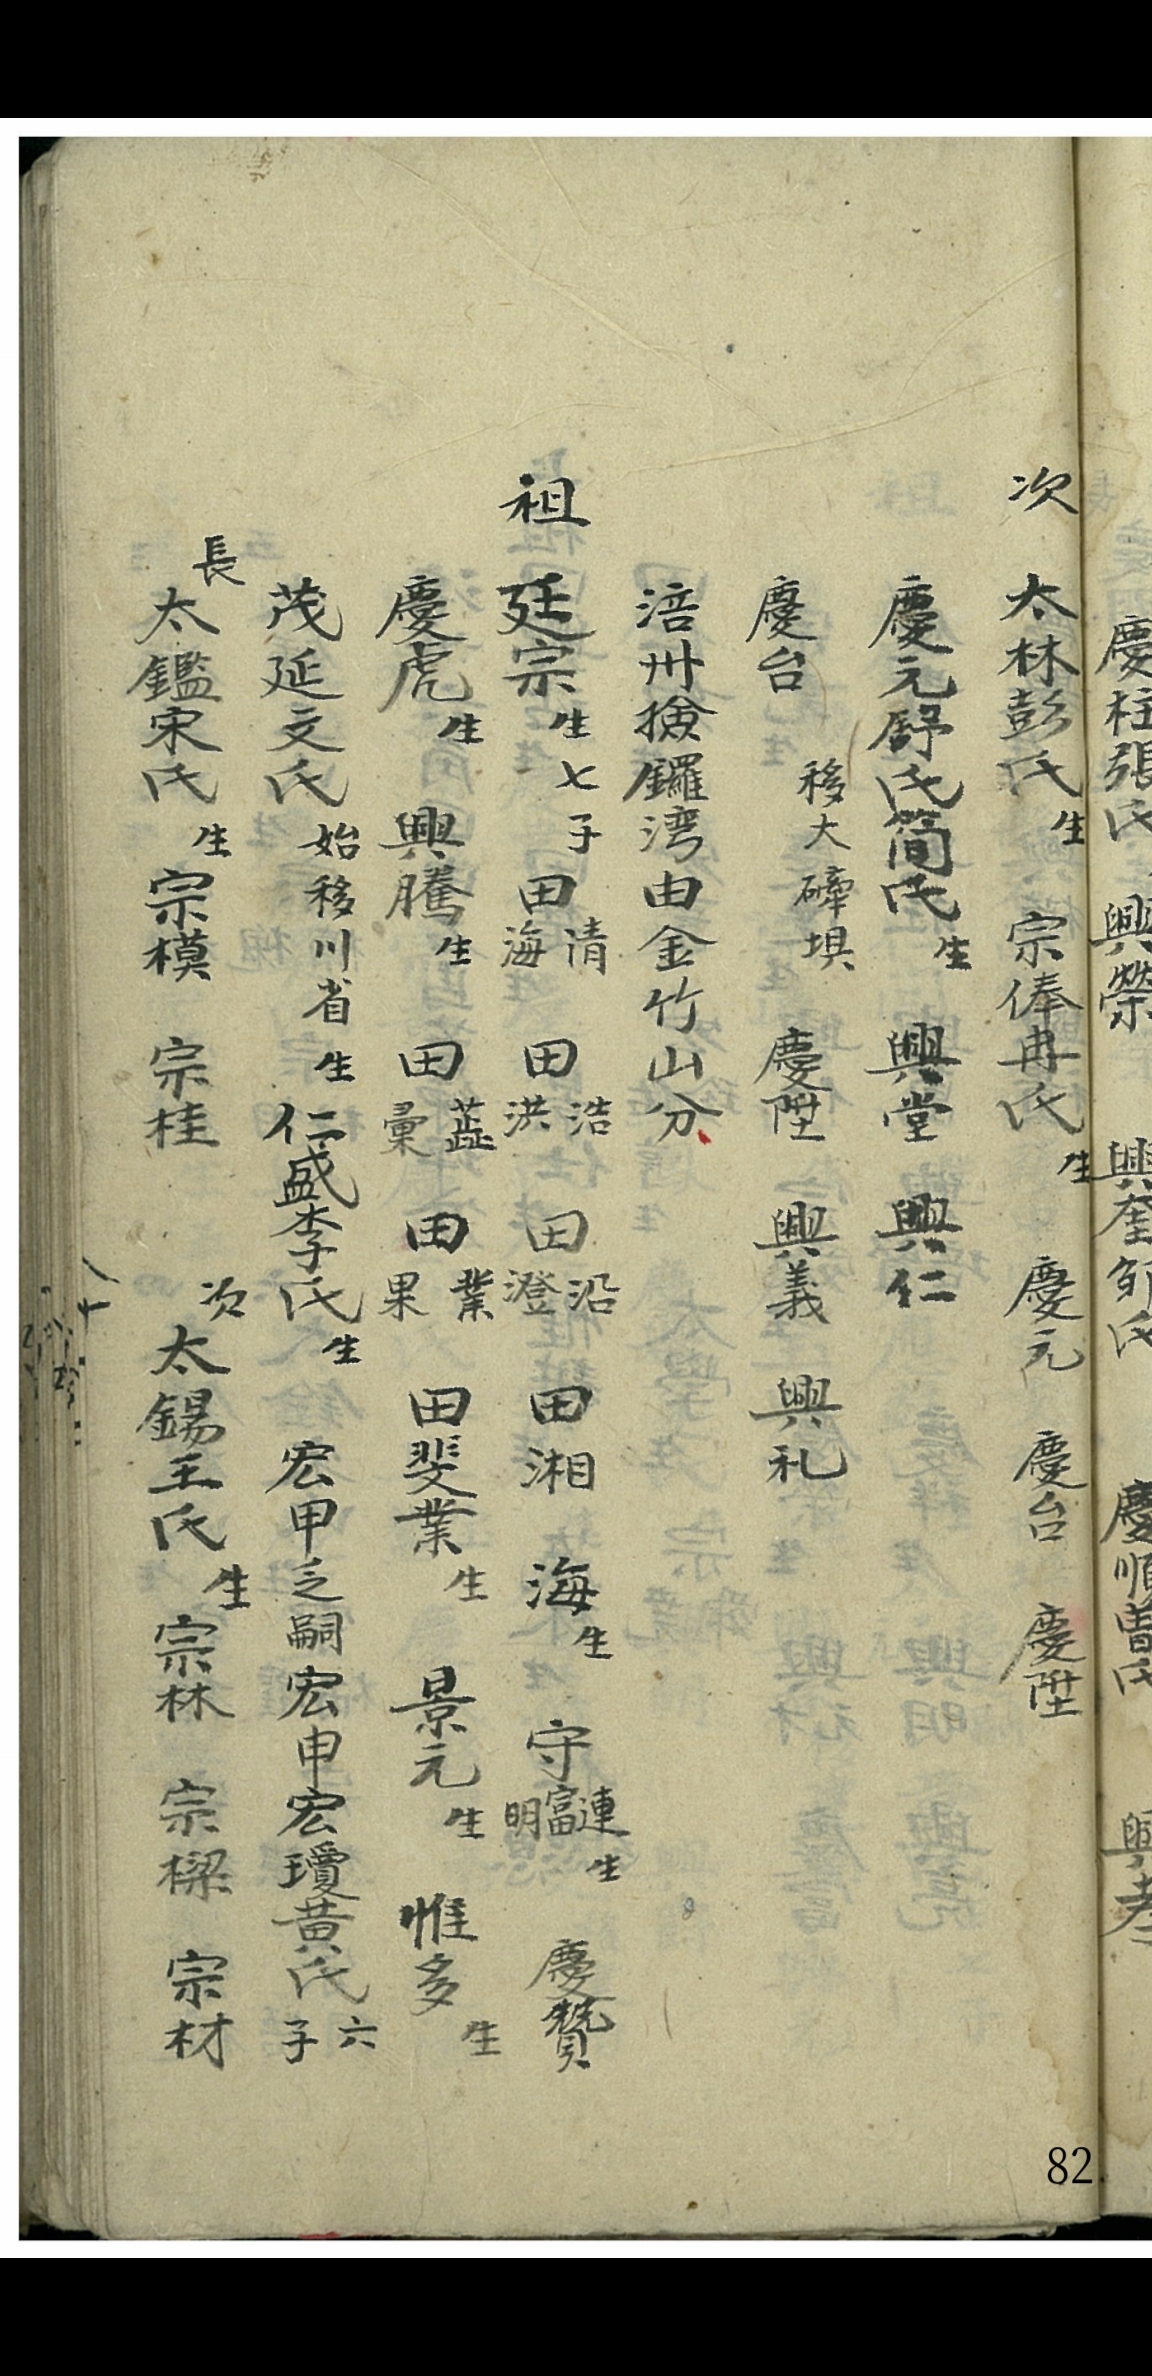 慶柱張氏 興榮 興奎邹氏 慶順曾氏 興孝
次 太林彭氏生 宗俸冉氏生 慶元 慶台 慶陞
慶元舒氏簡氏生 興堂 興仁
慶台 移大磾垻 慶陞 興義 興礼
涪州撿鑼湾由金竹山分
祖 廷宗生七子 田清海 田浩洪 田沿澄 田湘 海生 守連富明生 慶贊
慶虎生 興騰生 田蕋彙 田業果 田斐業生 景元生 惟多生
茂延文氏始移川省生 仁盛李氏生 宏甲乏嗣宏申宏瓊黄氏六子
長 太鑑宋氏生 宗模 宗桂 次 太錫王氏生 宗林 宗樑 宗材
82